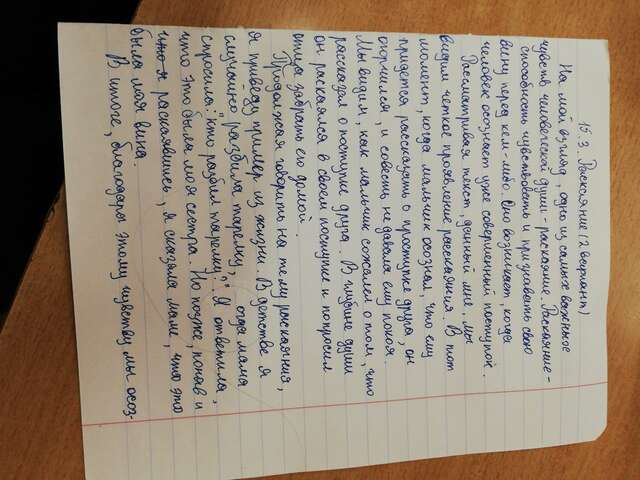 15.3. Раскаяние (2 вариант)
На мой взгляд, одно из самых важных
чувств человеческой души - раскаяние. Раскаяние -
способность чувствовать и признавать свою
вину перед кем-либо. Оно возникает, когда
человек осознает уже совершенный поступок.
Рассматривая текст, данный мне, мы
видим четкое проявление раскаяния. В тот
момент, когда мальчик осознал, что ему
придется рассказать о проступке друга, он
огорчился, и совесть не давала ему покоя.
Мы видим, как мальчик сожалел о том, что
рассказал о поступке друга. В глубине души
он раскаялся в своем поступке и попросил
отца забрать его домой.
Продолжая говорить на тему раскаяния,
я приведу пример из жизни. В детстве я
случайно разбила тарелку, когда мама
спросила: "Кто разбил тарелку?" Я ответила,
что это была моя сестра. Но позже, поняв и
раскаявшись, я сказала маме, что это
была моя вина.
В итоге, благодаря этому чувству мы осоз-